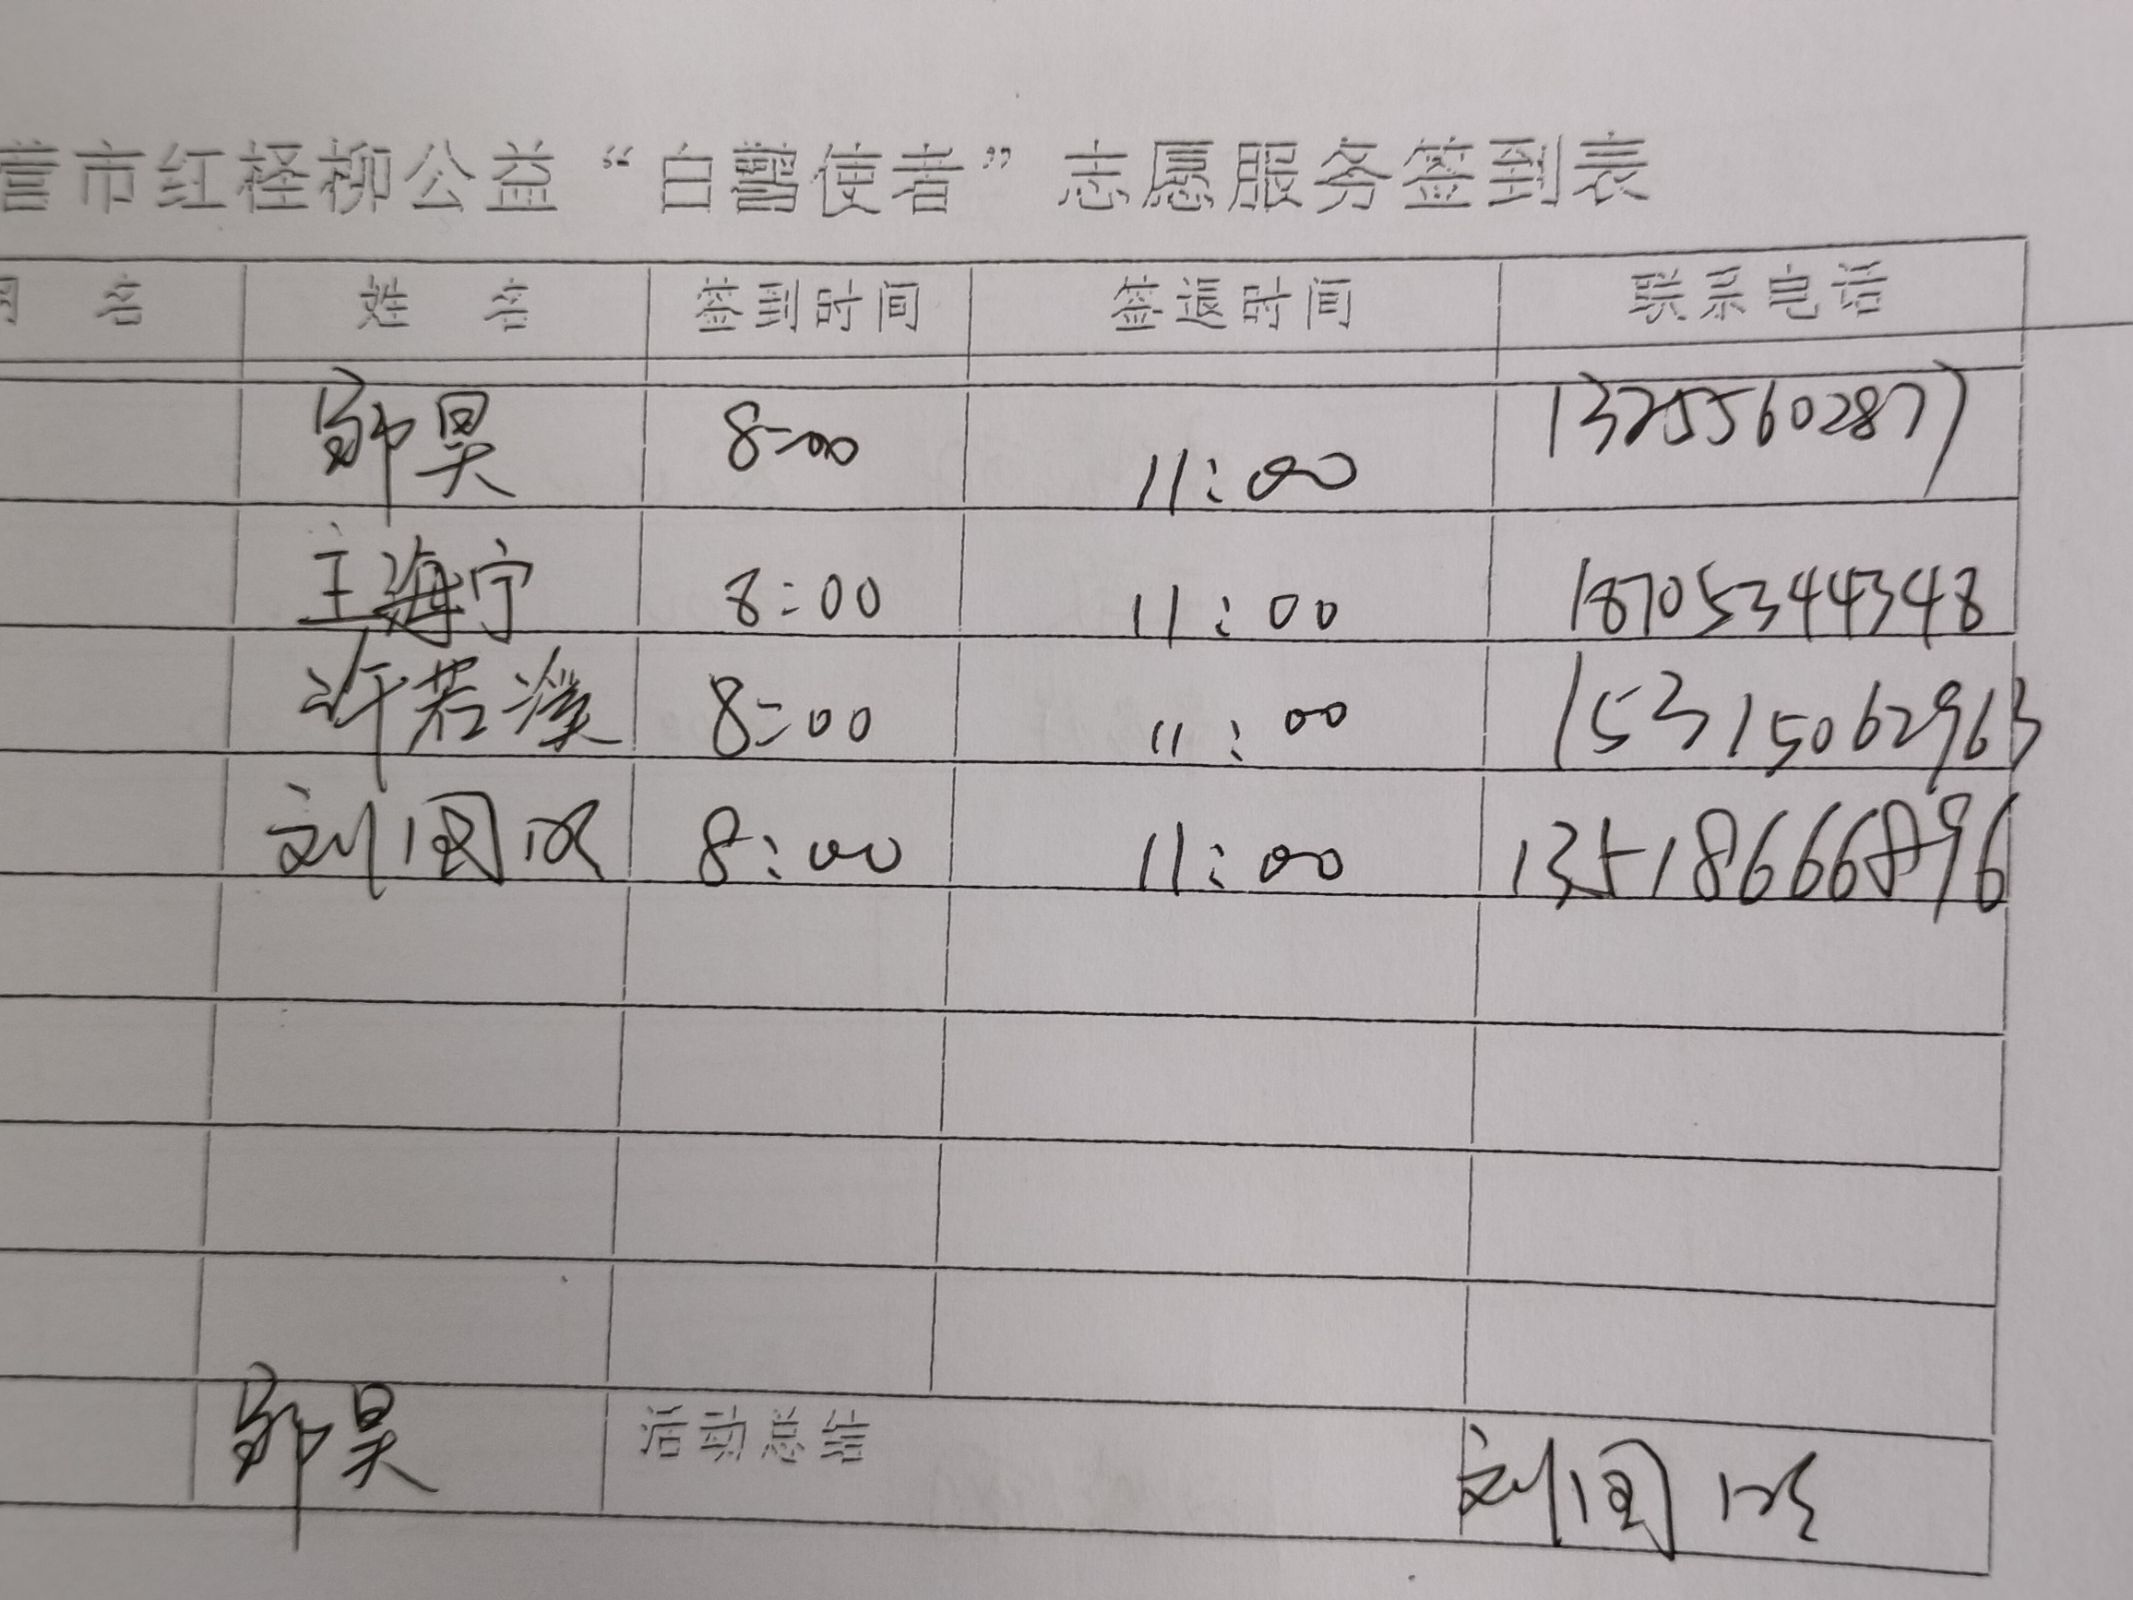 营市红柽柳公益“白鹭使者”志愿服务签到表
名 姓 名 签到时间 签退时间 联系电话
郭昊 8:00 11:00 13255602877
王海宁 8:00 11:00 18705344348
许若溪 8:00 11:00 15315062963
刘国欣 8:00 11:00 13518666896
郭昊 活动总结 刘国欣